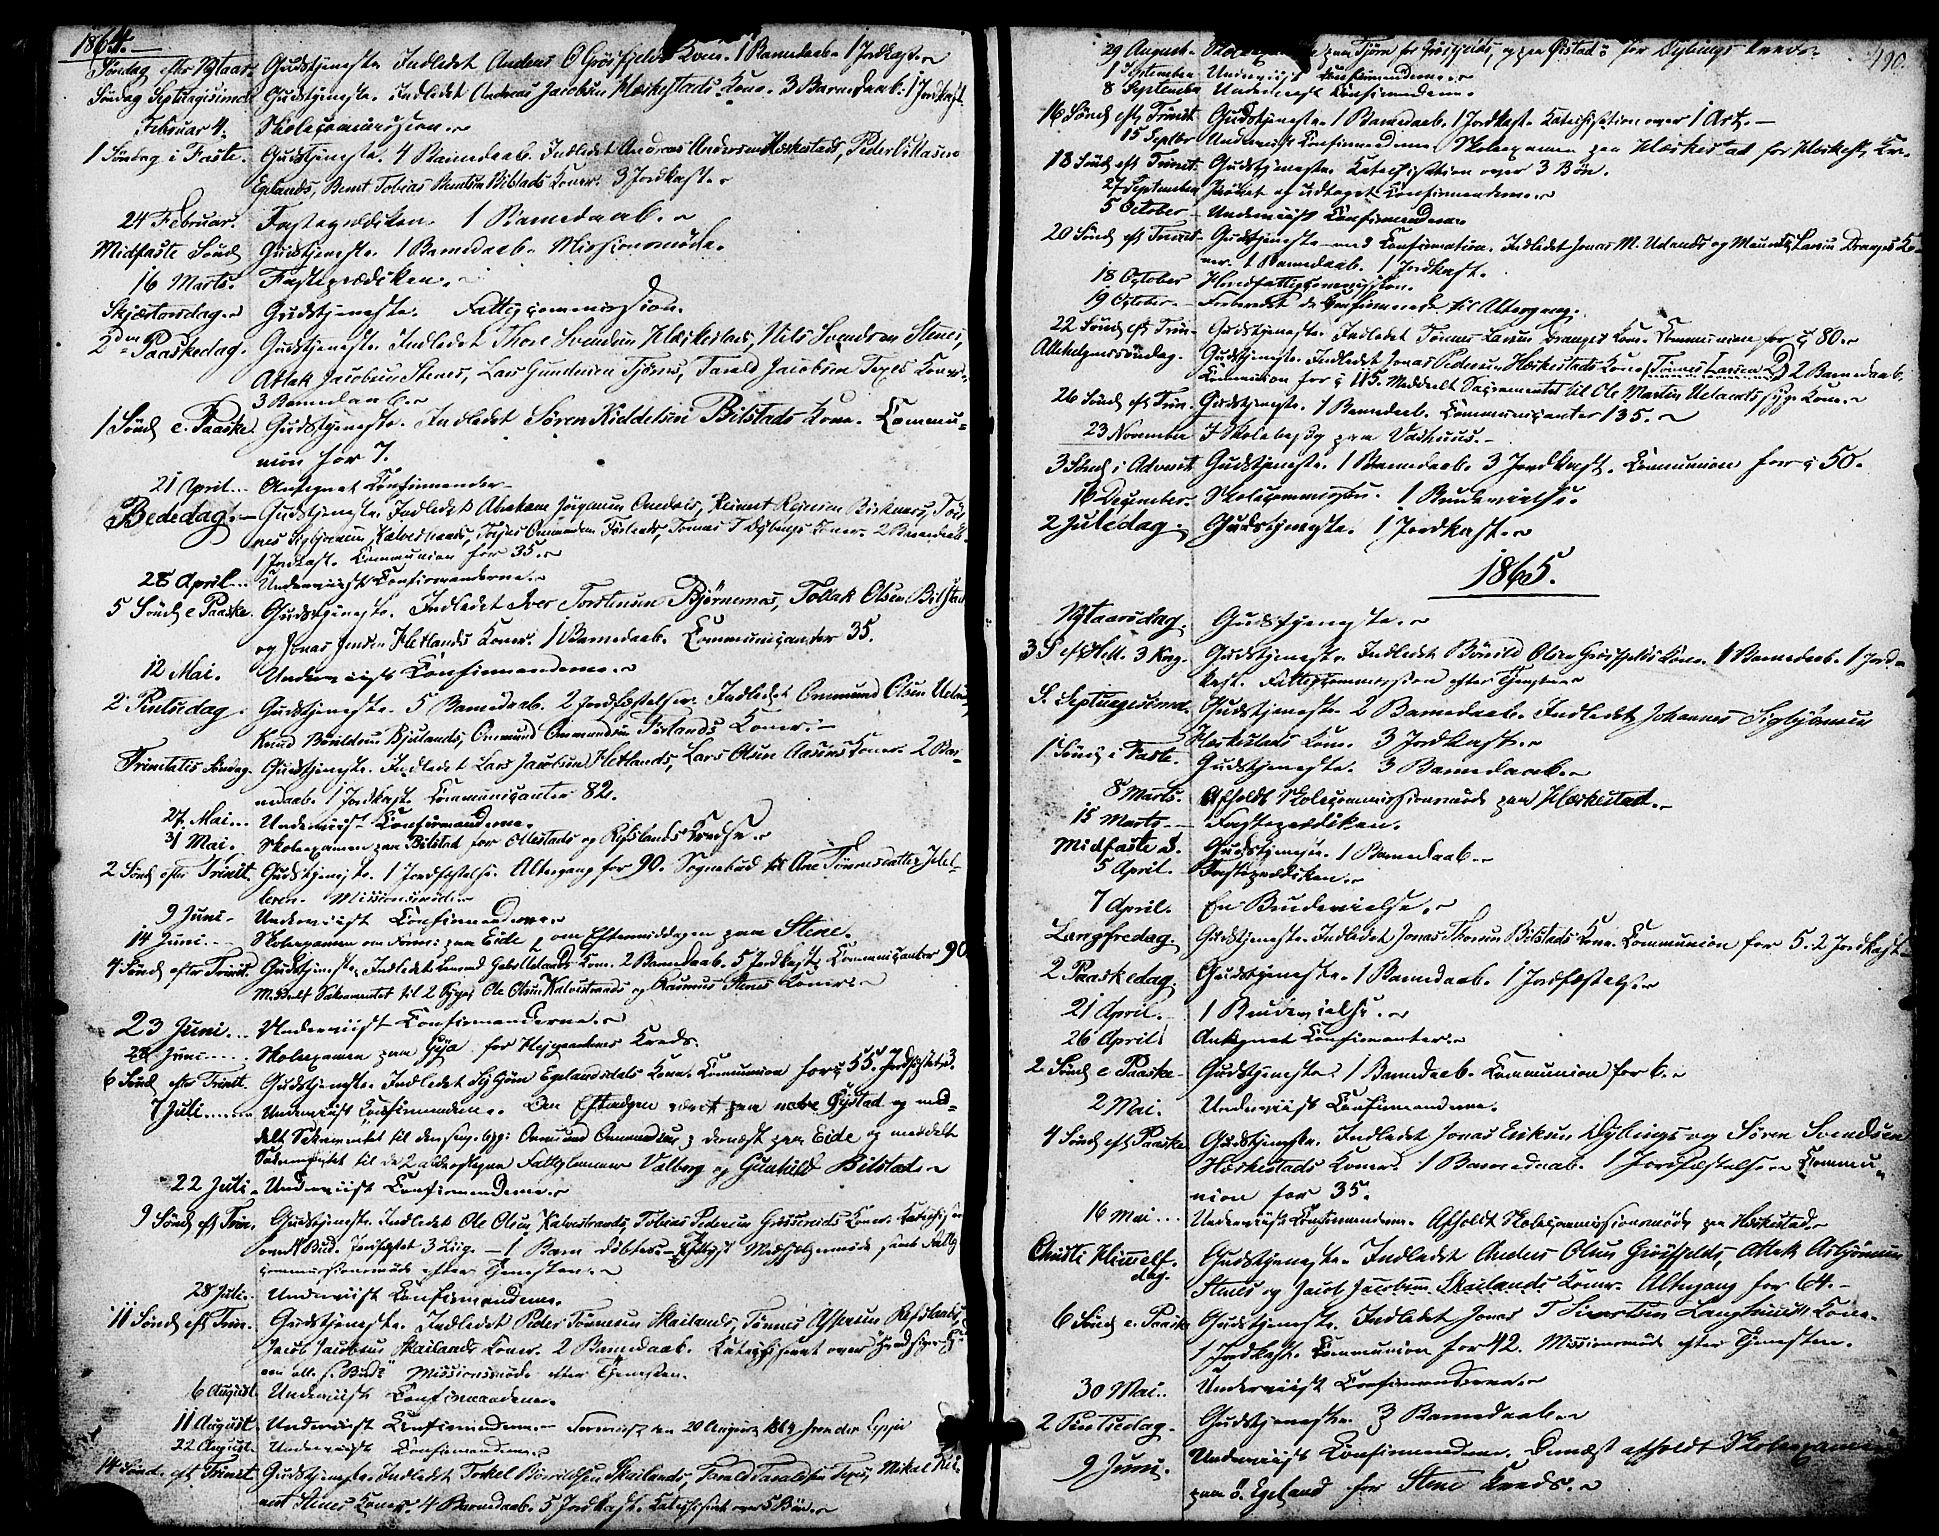 1864.
Søndag efter Nytaar. Gudstjeneste. Indledet Anders O Grösfjelds Kone. 1 Barnedaab. 1 Jordkast.
Søndag Septuagesima. Gudstjeneste. Indledet Andreas Jacobsen Hæskestads Kone. 3 Barnedaab. 1 Jordkast.
Februar 4. Skolecommission.
1 Søndag i Faste. Gudstjeneste. 4 Barnedaab. Indledet Andreas Andersen Hæskestads, Peder
Egelands, Bernt Tobias Bentsen Bilstads Koner. 3 Jordkast.
24 Februar. Fasteprædiken. 1 Barnedaab.
Midfaste Sønd. Gudstjeneste. 1 Barnedaab. Missionsmøde.
16 Marts. Fasteprædiken.
Skjærtorsdag. Gudstjeneste. Fattigcommission.
2den Paaskedag. Gudstjeneste. Indledet Thore Svendsen Hæskestads, Nils Svendsen Stenes,
Atlak Jacobsen Stenes, Lars Gundersen Tjörns, Tarald Jacobsen Texes Koner.
3 Barnedaab.
1 Sønd. e. Paaske. Gudstjeneste. Indledet Sören Kieddelsen Bilstads Kone. Commu-
nion for 7.
21 April. Antegnet Confirmander.
Bededag. Gudstjeneste. Indledet Abraham Jörgensen Ørsdals, Reinert Reinertsen Birkenes, Tön-
nes Sigbjörnsen Kalvestrands, Omund Ommundsen Förlands, Tönnes T Dybings Koner. 2 Barnedaab.
1 Jordkast. Communion for 35.
28 April. Underviist Confirmanderne.
5 Sønd. e. Paaske. Gudstjeneste. Indledet Iver Torstensen Bjørnemos, Tollak Olsen Bilstad
og Jonas Jensen Hetlands Koner. 1 Barnedaab. Communicanter 35.
12 Mai. Underviist Confirmanderne.
2 Pintsedag. Gudstjeneste. 5 Barnedaab. 2 Jordfæstelser. Indledet Ommund Olsen Uelands,
Knud Bøirildsen Bjulands, Ommund Ommundsen Förlands Koner.
Trinitatis Søndag. Gudstjeneste. Indledet Lars Jacobsen Hetlands, Lars Olsen Aasens Koner. 2 Bar-
nedaab. 1 Jordkast. Communicanter 82.
27 Mai. Underviist Confirmanderne.
31 Mai. Skoleexamen paa Bilstad for Ollestads og Refslands Kreds.
2 Sønd. efter Trinit. Gudstjeneste. 1 Jordfæstelse. Altergang for 90. Sognebud til Ane Tønnesdatter
Missionsmøde.
9 Juni. Underviist Confirmanderne.
14 Juni. Skoleexamen om Form: paa Eide, om Eftermiddagen paa Stene.
4 Sønd. efter Trinit. Gudstjeneste. Indledet Gabr. Uelands Kone. 2 Barnedaab. 5 Jordkast. Communicanter 90.
Meddelt Sakramentet til 2 Syge: Ole Olsen Kalvestrands og Rasmus Stenes Koner.
23 Juni. Underviist Confirmanderne.
28 Juni. Skoleexamen paa Gya for Kreds.
6 Sønd. efter Trinit. Gudstjeneste. Indledet Egelandsdals Kone. Communion for 55. Jordfæstet 3.
7 Juli. Underviist Confirmanderne. Om Eftermdgen været paa nedre Øystad og med-
delt Sakramentet til den syge Ommund Ommundsen; dernæst paa Eide og meddelt
Sakramentet til de 2 alderstegne Fattiglemmer Valborg og Gunhild Bilstad.
22 Juli. Underviist Confirmanderne.
9 Sønd. eft. Trin. Gudstjeneste. Indledet Ole Olsen Kalvestrands, Tobias Pedersen Grøssereids Koner. Katechisation
over 4 Bud. Jordfæstet 3 Liig. 1 Barn døbtes. samt Fattig-
commissionsmøde efter Tjenesten.
28 Juli. Underviist Confirmanderne.
11 Sønd. eft. Trin. Gudstjeneste. Indledet Peder Tönnesen Skailands, Tønnes Refslands,
Jacob Jacobsen Skailands Koner. 2 Barnedaab. Katechiseret over
Missionsmøde efter Tjenesten.
6 August. Underviist Confirmanderne.
11 August. Underviist Confirmanderne.
22 August. Underviist Confirmanderne.
14 Sønd. eft. Trinit. Gudstjeneste. Indledet Torkel Bøirildsen Skailands, Tarald Taraldsen Texes, Mikal Rei-
nert Stenes Koner. 4 Barnedaab. 5 Jordkast. Katechiseret over 5 Bøn.
490
29 August. Skoleexamen paa Tjørn for Grøsfjelds, og paa Øistad for Dybings Kreds.
1 September Underviist Confirmanderne.
8 September Underviist Confirmanderne.
16 Sønd. eft. Trinit. Gudstjeneste. 1 Barnedaab. 1 Jordkast. Katechisation over 1 Art.
15 Septbr Underviist Confirmanderne. Skoleexamen paa Hæskestad for Hæskest. Kr.
18 Sønd. eft. Trinit. Gudstjeneste. Katechisation over 3 Bøn.
27 September Prøvet og udtaget Confirmanderne.
5 October Underviist Confirmanderne.
20 Sønd. eft. Trinit. Gudstjeneste med Confirmation. Indledet Jonas M. Uelands og Mauritz Larsen Dranges Ko-
ner. 1 Barnedaab. 1 Jordkast.
18 October Fattigcommission.
19 October Forberedt de Confirmerede til Altergang.
22 Sønd. eft. Trin. Gudstjeneste. Indledet Tönnes Larsen Dranges Kone. Communion for c 80.
Allehelgenssøndag. Gudstjeneste. Indledet Jonas Pedersen Hæskestads Kone (Tönnes Larsen D) 2 Barnedaab.
Communion for c 115. Meddelt Sacramentet til Ole Martin Uelands syge Kone.
26 Sønd. eft. Trin. Gudstjeneste. 1 Barnedaab. Communicanter 135.
23 November I Skolebesøg paa Vashuus.
3 Sønd. i Advent Gudstjeneste. 1 Barnedaab. 3 Jordkast. Communion for c 50.
16 December. Skolecommission. 1 Brudevielse.
2 Juledag. Gudstjeneste. 1 Jordkast.
1865.
Nytaarsdag. Gudstjeneste.
3 S. eft. Hell. 3 Kng. Gudstjeneste. Indledet Bøirild Olsen Grøsfjelds Kone. 1 Barnedaab. 1 Jord-
kast. Fattigcommission efter Tjenesten.
S. Septuagesima. Gudstjeneste. 2 Barnedaab. Indledet Johannes Sigbjörnsen
Hæskestads Kone. 3 Jordkast.
1 Sønd. i Faste. Gudstjeneste. 3 Barnedaab.
8 Marts. Afholdt Skolecommissionsmøde paa Hæskestad.
15 Marts. Fasteprædiken.
Midfaste S. Gudstjeneste. 1 Barnedaab.
5 April. Fasteprædiken.
7 April. En Brudevielse.
Langfredag. Gudstjeneste. Indledet Jonas Thorsen Bilstads Kone. Communion for 5. 2 Jordkast.
2 Paaskedag. Gudstjeneste. 1 Barnedaab. 1 Jordfæstelse.
21 April. 1 Brudevielse.
26 April. Antegnet Confirmanter.
2 Sønd. e Paaske. Gudstjeneste. 1 Barnedaab. Communion for 6.
2 Mai. Underviist Confirmanderne.
4 Sønd. eft. Paaske Gudstjeneste. Indledet Jonas Eriksen Dybings og Søren Svendsen
Hæskestads Koner. 1 Barnedaab. 1 Jordfæstelse. Commu-
nion for 35.
16 Mai. Underviist Confirmanderne. Afholdt Skolecommissionsmøde paa Hæskestad.
Christi Himmelf. Gudstjeneste. Indledet Anders Olsen Grøsfjelds, Atlak Asbjörnsen
dag. Stenes og Jacob Jacobsen Skailands Koner. Altergang for 64.
6 Sønd. e. Paaske Gudstjeneste. Indledet Jonas T Sivertsen Langhuus Kone.
1 Jordkast. Communion for 42. Missionsmøde efter Tjenesten.
30 Mai. Underviist Confirmanderne.
2 Pintsedag. Gudstjeneste. 3 Barnedaab.
9 Juni. Underviist Confirmanderne. Dernæst afholdt Skoleexamen
paa ö. Egeland for Stene Kreds.